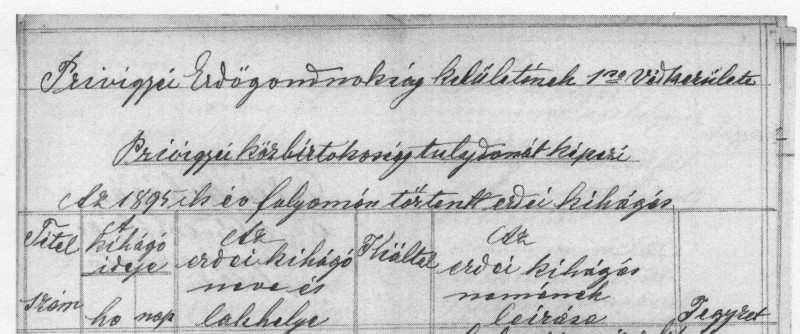 Privigyei Erdőgondnokság kerületének 1ső Védkerülete
Privigyei közbirtokosság tulajdonát képezi
Az 1895 ik év folyamán történt erdei kihágás
Titel
szám
A
kihágó
ideje
ho nap
Az
erdei kihágó
neve és
lakhelye
Kiáltel
Az
erdei kihágás
nemének
leírása
Jegyzet